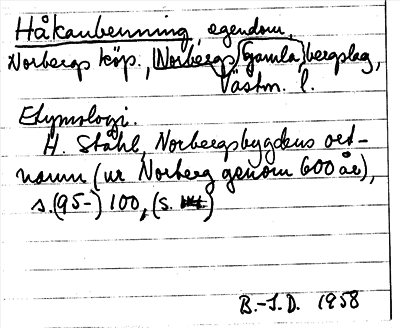 Håkanbenning, egendom,
Norbergs köp., Norbergs gamla bergslag,
Västm. l.
Etymologi.
H. Ståhl, Norbergsbygdens ort-
namn (ur Norberg genom 600 år),
s. (95-) 100, (s.)
B.-S.D. 1958